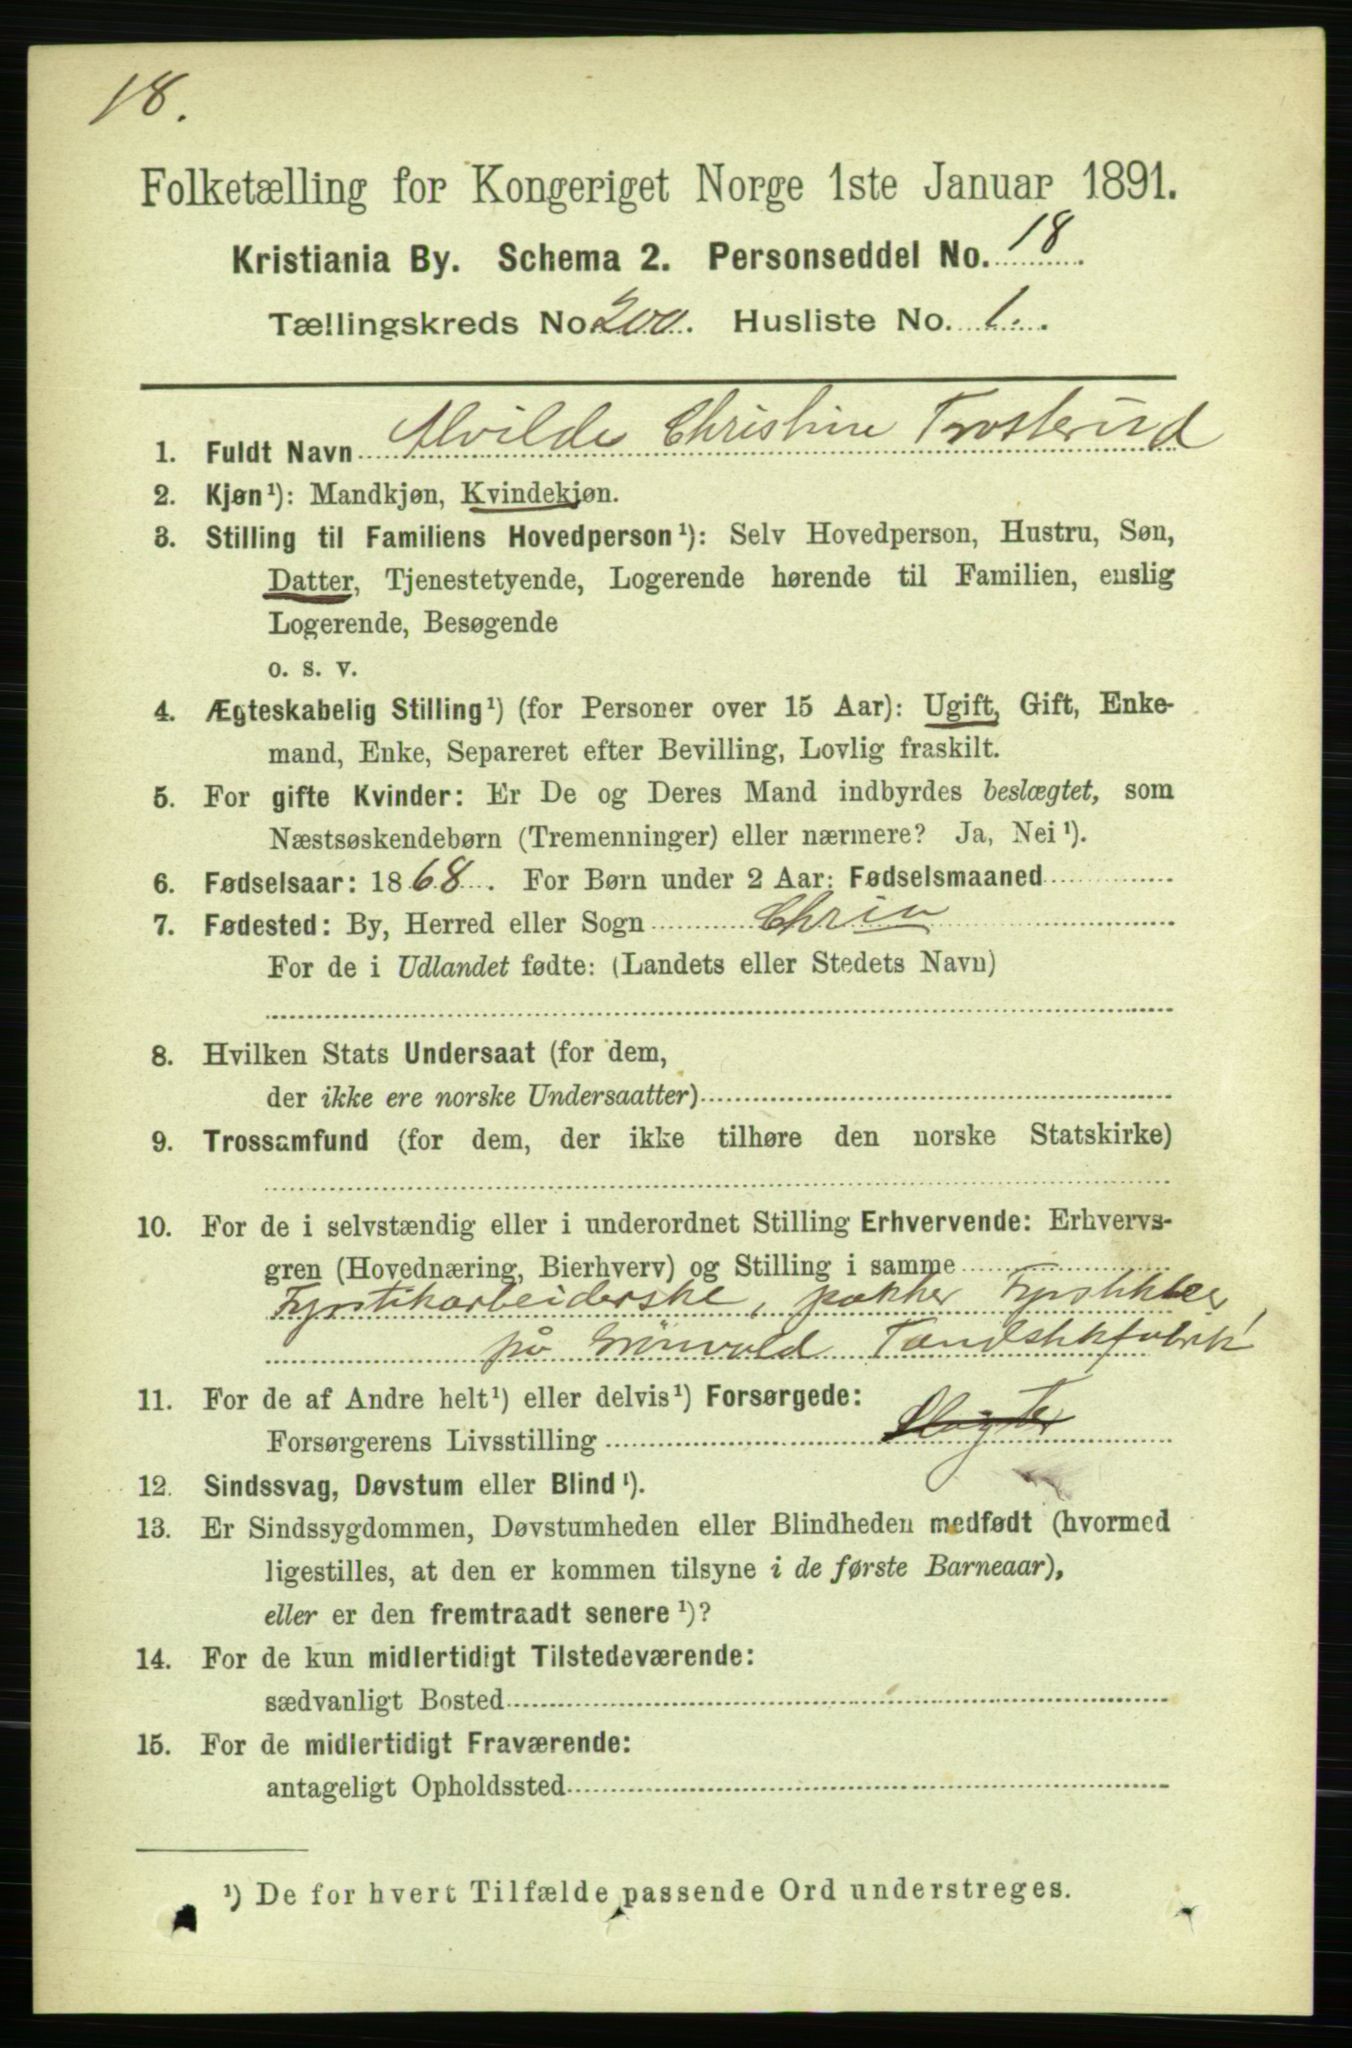 18.
Folketælling for Kongeriget Norge 1ste Januar 1891.
Kristiania By. Schema 2. Personseddel No. 18
Tællingskreds No. 200. Husliste No. 1.
1. Fuldt Navn Alvilde Christine Trosterud
2. Kjøn¹): Mandkjøn, Kvindekjøn.
3. Stilling til Familiens Hovedperson¹): Selv Hovedperson, Hustru, Søn,
Datter, Tjenestetyende, Logerende hørende til Familien, enslig
Logerende, Besøgende
o. s. v.
4. Ægteskabelig Stilling¹) (for Personer over 15 Aar): Ugift, Gift, Enke-
mand, Enke, Separeret efter Bevilling, Lovlig fraskilt.
5. For gifte Kvinder: Er De og Deres Mand indbyrdes beslægtet, som
Næstsøskendebørn (Tremenninger) eller nærmere? Ja, Nei¹).
6. Fødselsaar: 1868. For Børn under 2 Aar: Fødselsmaaned
7. Fødested: By, Herred eller Sogn Chria
For de i Udlandet fødte: (Landets eller Stedets Navn)
8. Hvilken Stats Undersaat (for dem,
der ikke ere norske Undersaatter)
9. Trossamfund (for dem, der ikke tilhøre den norske Statskirke)
10. For de i selvstændig eller i underordnet Stilling Erhvervende: Erhvervs-
gren (Hovednæring, Bierhverv) og Stilling i samme
Fyrstikarbeiderske, pakker Fyrstikker
på Grönvold Tændstikfabrik
11. For de af Andre helt¹) eller delvis¹) Forsørgede:
Forsørgerens Livsstilling Slagter
12. Sindssvag, Døvstum eller Blind¹).
13. Er Sindssygdommen, Døvstumheden eller Blindheden medfødt (hvormed
ligestilles, at den er kommen tilsyne i de første Barneaar),
eller er den fremtraadt senere¹)?
14. For de kun midlertidigt Tilstedeværende:
sædvanligt Bosted
15. For de midlertidigt Fraværende:
antageligt Opholdssted
¹) De for hvert Tilfælde passende Ord understreges.